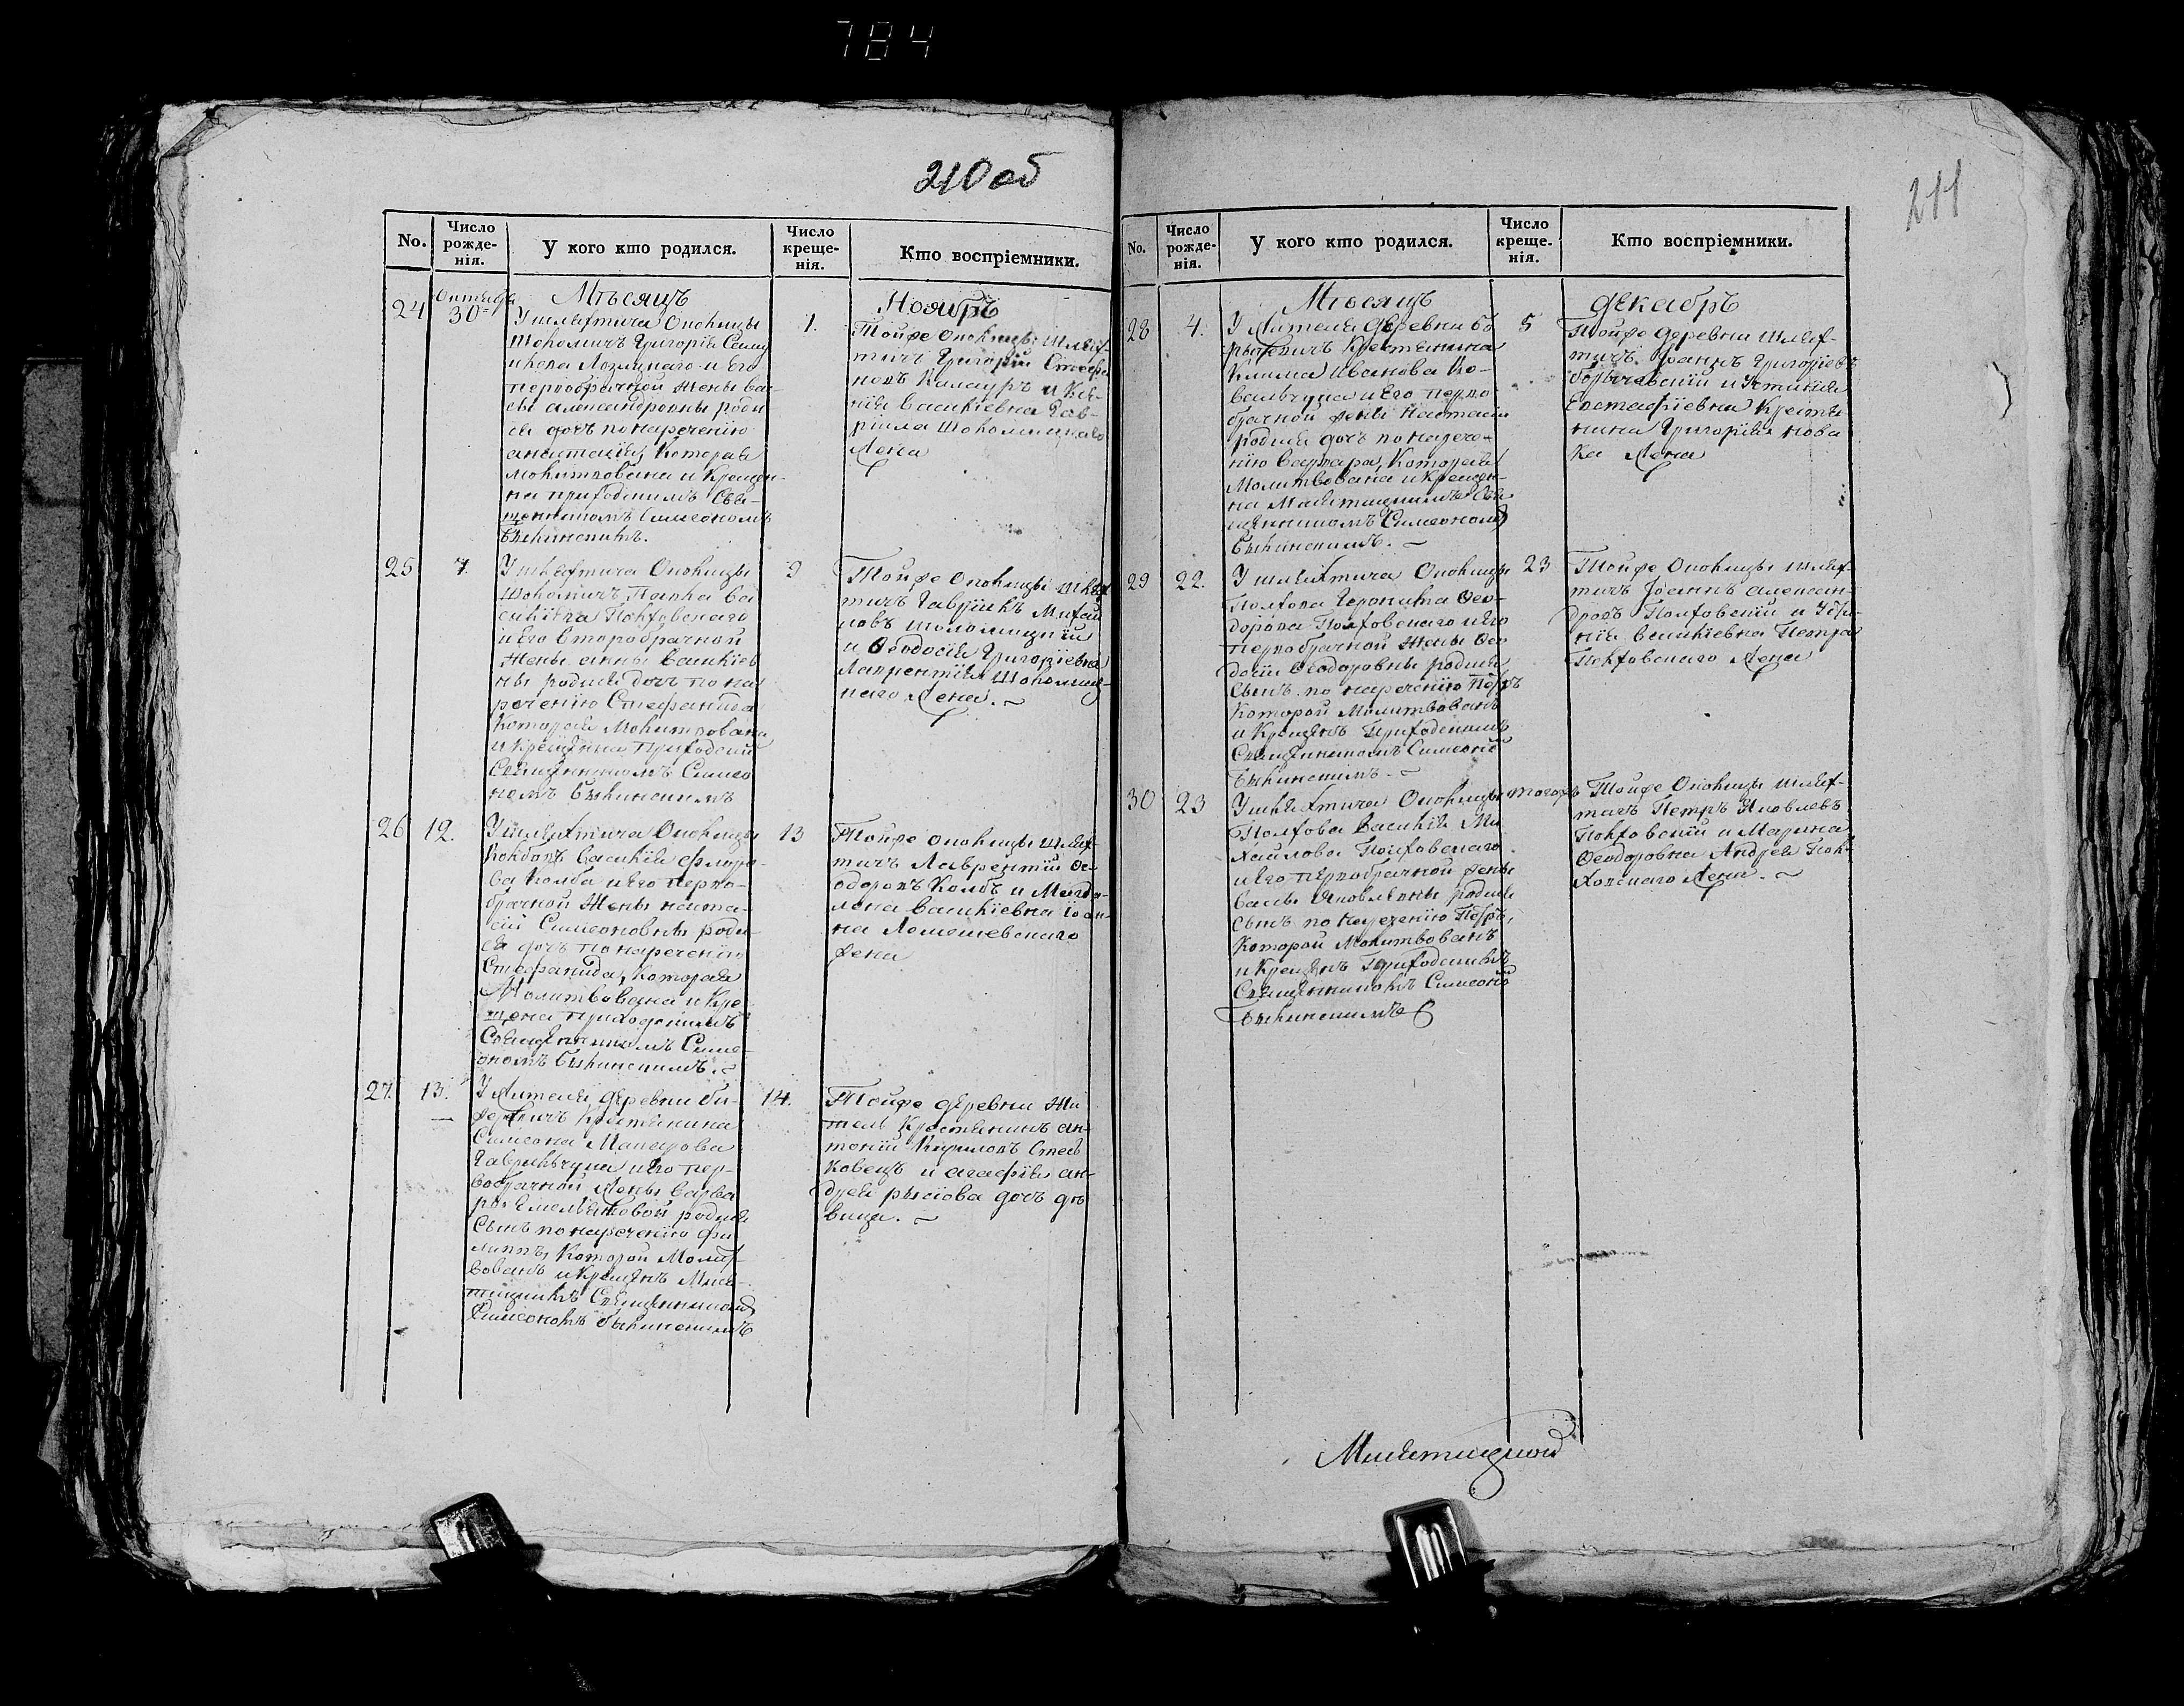 784
210 об
No.
Число рожде-нія.
У кого кто родился.
Число креще-нія.
Кто воспріемники.
Мѣсяцъ
Ноябрь
24
Октября 30
У шляхтича Околицы
Шоломичъ Григорія Сем
и его
первобрачной жены Ва
сы Александровны роди
ся дочь по нареченію
Анастасія, которая
молитвована и креще
на приходскимъ Свя-
щенникомъ Симеономъ
1.
Тойже Околицы Шлях-
тичъ Григорій Стефа
новъ Калауръ и Ксе-
нія Василіевна Гав-
ріила Шоломицкаго
жена
25
7.
У шляхтича Околицы
Шоломичъ Павла Ва
силіева Полховскаго
и его второбрачной
жены Анны Василіев
ны родися дочь по на
реченію Стефанида
которая молитвована
и крещена приходским
Священникомъ Симео
номъ
9
Тойже Околицы Шлях
тичъ Гавріилъ Михай
ловъ Шоломицкій
и Ѳеодосія Григоріевна
Лаврентія Шоломиц-
каго жена.
26
12.
У шляхтича Околицы
Колбовъ Василія Флоро-
ва Колба и его перво-
брачной жены Наста-
сіи Симеоновны роди-
ся дочь по нареченію
Стефанида, которая
молитвована и кре
щена приходскимъ
Священникомъ Симе-
ономъ
13
Тойже Околицы Шлях-
тичъ Лаврентій Ѳе-
одоровъ Колбъ и Магда-
лена Василіевна Іоан-
на Ломешевскаго
жена
27.
13.
У жителя деревни
крестьянина
Симеона Макарова
Гаврильчука и его пер-
вобрачной жены Варва
ры Емельяновой родися
сынъ по нареченію Фи
липпъ, которой молит-
вованъ и крещенъ Мля-
тицкимъ Священникомъ
Симеономъ
14.
Тойже деревни жи
тель крестьянинъ Ан-
тоній Кириловъ Стас
ковецъ и Агафія Ан-
дрея дочь дѣ
вица.
211
No.
Число рожде-нія.
У кого кто родился.
Число креще-нія.
Кто воспріемники.
Мѣсяцъ
декабрь
28
4.
У жителя деревни Бо
рычевичъ крестьянина
Клима Иванова Ко-
вальчука и его перво
брачной жены Настасіи
родися дочь по нарече-
нію Варвара, которая
молитвована и креще-
на Млятицкимъ Свя
щенникомъ Симеономъ
5
Тойже деревни Шлях-
тичъ Іоаннъ Григоріевъ
Борычевскій и Устинія
Евстафіевна крестья-
нина Григорія Нова
ка жена
29
22.
У шляхтича Околицы
Полхова Ѳео-
дорова Полховскаго и его
первобрачной жены Ѳео
досіи Ѳеодоровны родися
сынъ по нареченію Петръ
которой молитвованъ
и крещенъ приходскимъ
Священникомъ Симеоно
23
Тойже Околицы Шлях-
тичъ Іоаннъ Алексан-
дровъ Полховскій и
Василіевна Петра
Полховскаго жена
30
23
У шляхтича Околицы
Полхова Василія Ми
хайлова Полховскаго
и его первобрачной жены
Васы Яковлевны родися
сынъ по нареченію Петръ,
которой молитвованъ
и крещенъ приходскимъ
Священникомъ Симеоно
тогожъ
Тойже Околицы Шлях-
тичъ Петръ Яковлевъ
Полховскій и Марина
Ѳеодоровна Андрея Пол-
ховскаго жена.